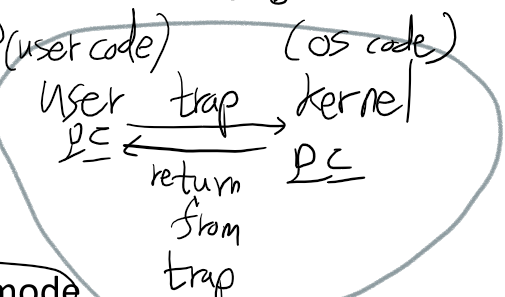 (user code) (OS code)
user trap kernel
PC PC
return
from
trap
mode